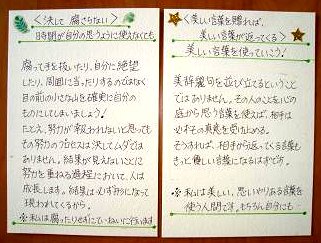 <決して 腐らさない>
時間が自分の思うように使えなくても
腐って手を抜いたり、自分に絶望
したり、周囲に当ったりするのではなく
目の前の小さな山を確実に自分の
ものにしてしまいましょう！
たとえ、努力が報われないと思っても
その努力のプロセスは決してムダでは
ありません。結果が見えないことに
努力を重ねる過程において、人は
成長します。結果は必ず形になって
現われてくるから。
※私は腐ったりせずにていねいに行います
<美しい言葉を贈れば、
美しい言葉が返ってくる>
美しい言葉を使っていこう！
美辞麗句を並び立てるということ
ではありません。その人のことを心の
底から思う言葉を使えば、相手は
必ずその真意を受け止める。
そうすれば、相手から返ってくる言葉も
きっと優しい言葉になるはずです。
※私は美しい、思いやりある言葉を
使う人間です。もちろん自分にも